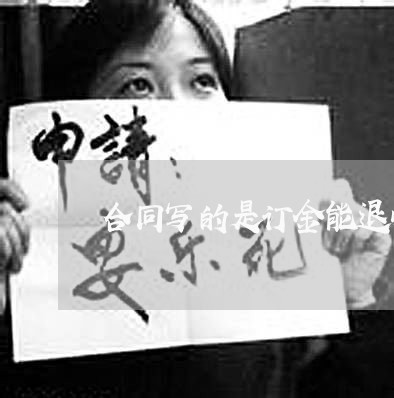 申請：
合同写的是订金能退
安乐死